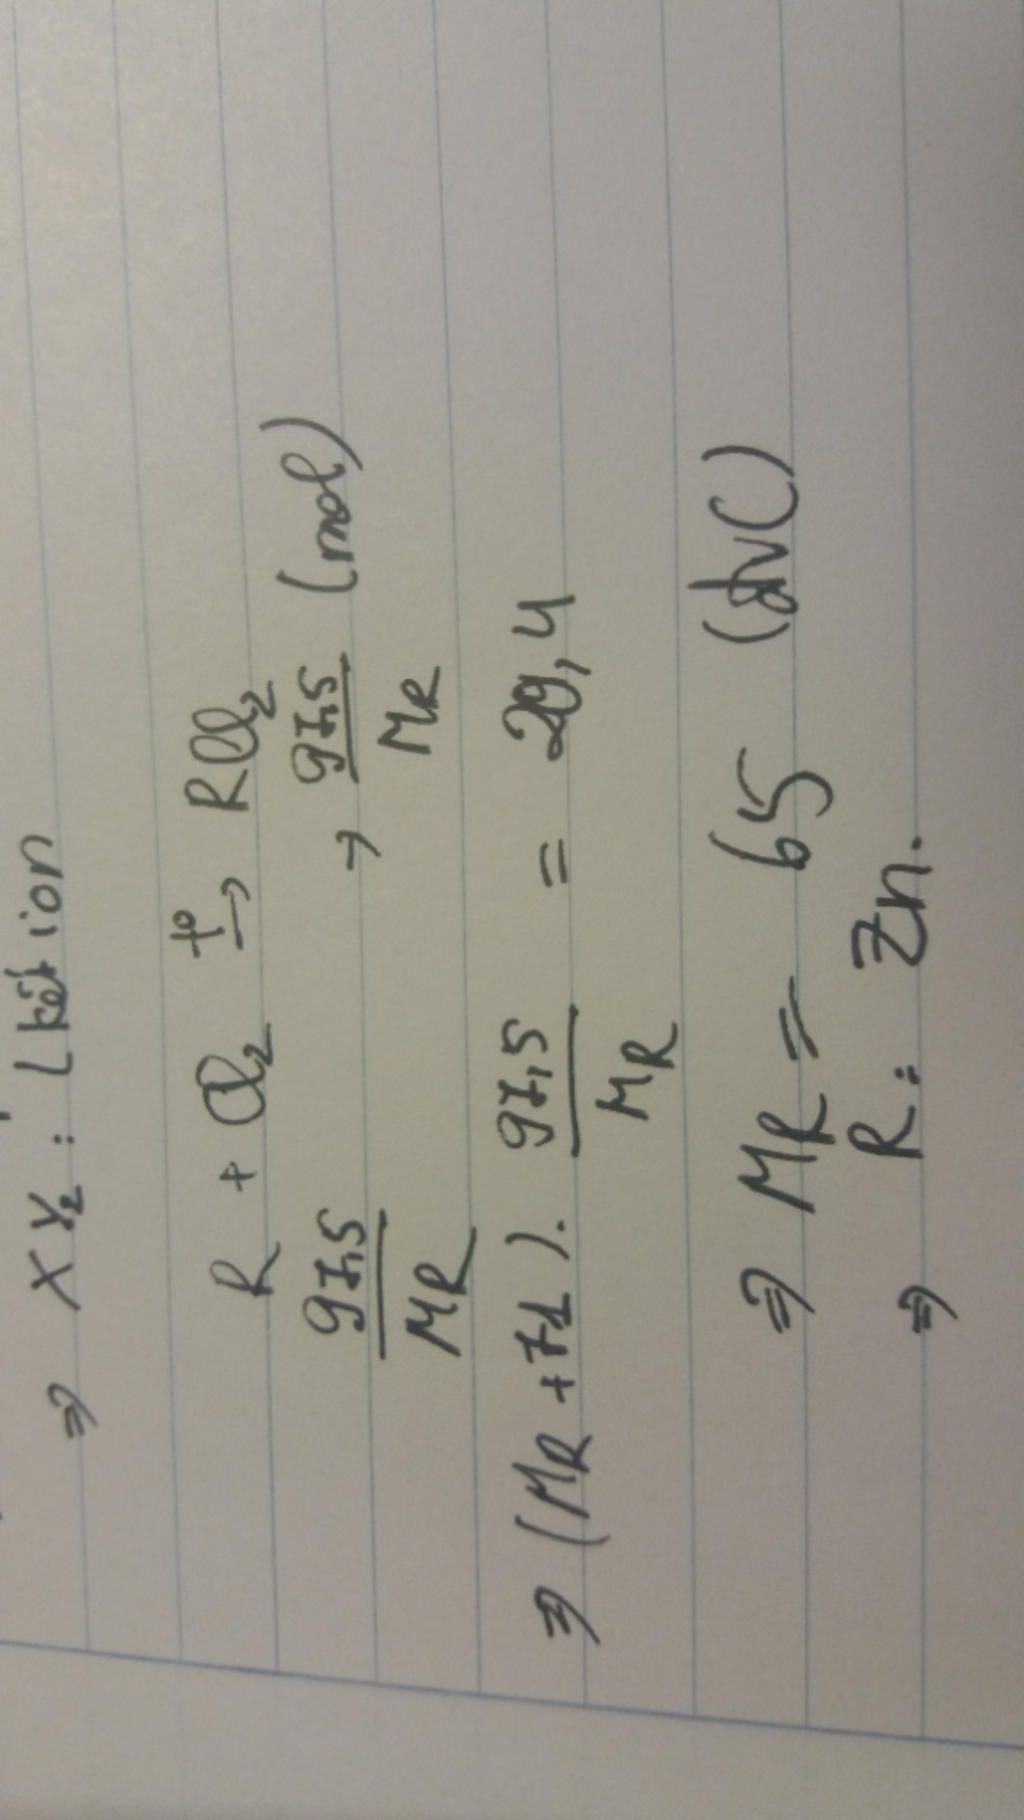 ⇒ XY₂ : L kết ion
R + Cl₂ t°→ RCl₂
97,5/MR → 97,5/MR (mol)
⇒ (MR + 71). 97,5/MR = 20,4
⇒ MR = 65 (đvC)
⇒ R : Zn.